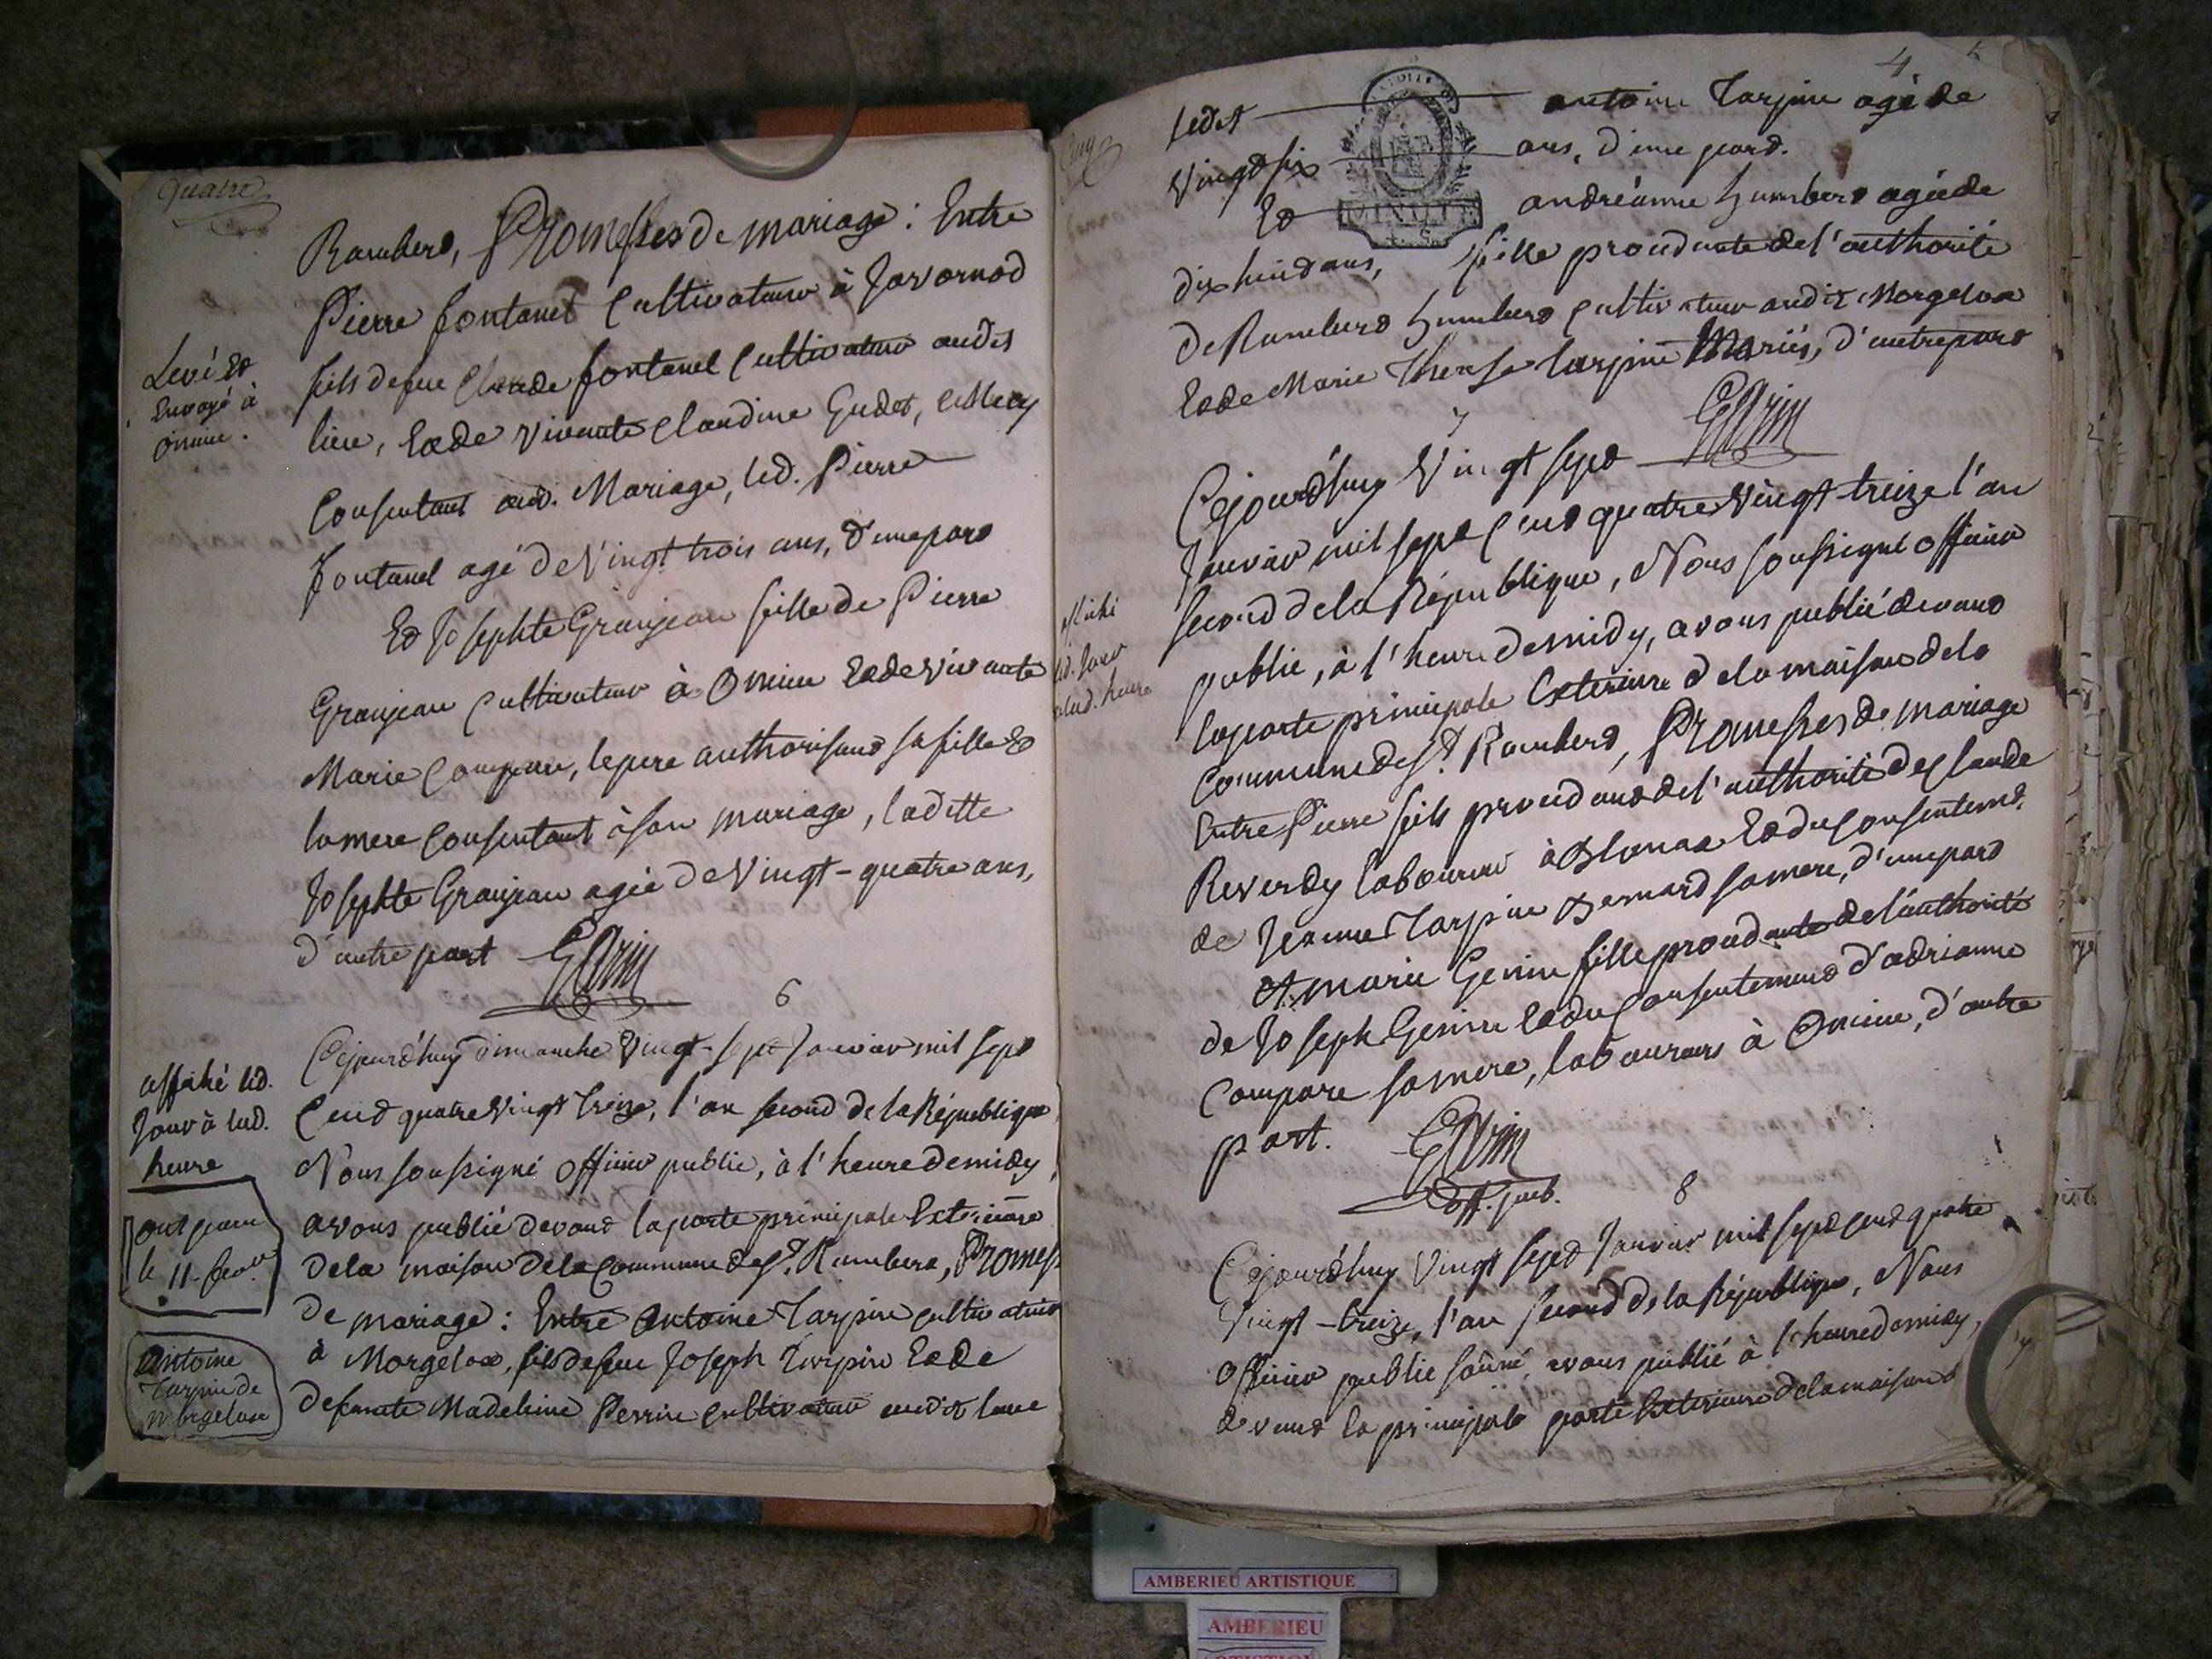 quatre
Rambert, Promesses de mariage : Entre
Pierre fontanel Cultivateur à Javornod
fils de feu Claude fontanel Cultivateur audit
lieu, Et de vivante Claudine Gudet,
Consentant aud. Mariage, led. Pierre
fontanel agé de Vingt trois ans, d'une part
Et Josephte Granjean fille de Pierre
Granjean Cultivateur à Oncieu Et de vivante
Marie Compare, le pere authorisant sa fille Et
la mere Consentant à son mariage, laditte
Josephte Granjean agée de Vingt-quatre ans,
d'autre part
Levé Et
Envoyé à
oncieu.
6
Cejourd'huy dimanche Vingt-sept Janvier mil sept
Cent quatre Vingt treize, l'an second de la République
Nous soussigné officier public, à l'heure de midy,
avons publié devant la porte principale Exterieure
de la maison de la Commune de St. Rambert, Promess
de mariage : Entre Antoine Tarpin cultivateur
à Morgelax, fils de feu Joseph Tarpin Et de
defunte Madeleine Perrin Cultivateur audit lieu
affiché led.
Jour à lad.
heure
ont paru
le 11 fevr.
Antoine
Tarpin de
morgelax
4
Cinq
ledit antoine Tarpin agé de
Vingt six ans, d'une part.
Et andréanne humbert agée de
dix huit ans, fille proudante de l'authorité
de Rambert humbert Cultivateur audit Morgelax
Et de Marie Therese Tarpin Mariés, d'autre part
7
Cejourd'huy Vingt sept
Janvier mil sept Cent quatre Vingt-treize l'an
second de la République, Nous soussigné officier
public, à l'heure de midy, avons publié devant
la porte principale Exterieure de la maison de la
Commune de St. Rambert, Promesses de mariage
Entre Pierre fils proudant de l'authorité de Claude
Reverdy laboureur à Blanaz Et du Consentemt.
de Jeanne Tarpin Bernard sa mere, d'une part
Et marie Genin fille proudante de l'authorité
de Joseph Genin Et du Consentement d'adrianne
Compare sa mere, laboureurs à Oncieu, d'autre
part.
off. pub.
affiché
led. Jour
à lad. heure
8
Cejourd'huy Vingt sept Janvier mil sept cent quatre
Vingt-treize, l'an second de la République, Nous
officier public soussigné, avons publié à l'heure de midy,
devant la principale porte Exterieure de la maison d
AMBERIEU ARTISTIQUE
AMBERIEU
ARTISTIQUE